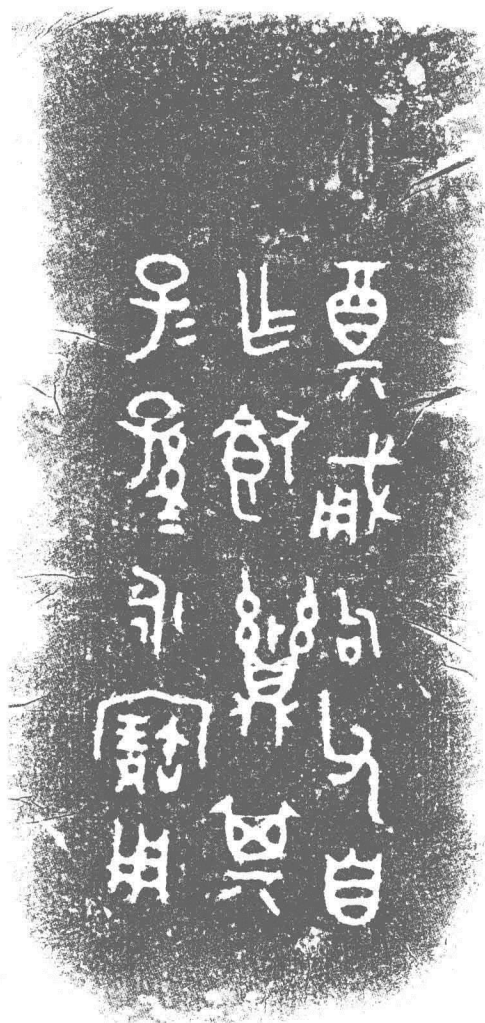 奠句父自
乍飤鼒其
子=孫=永寶用